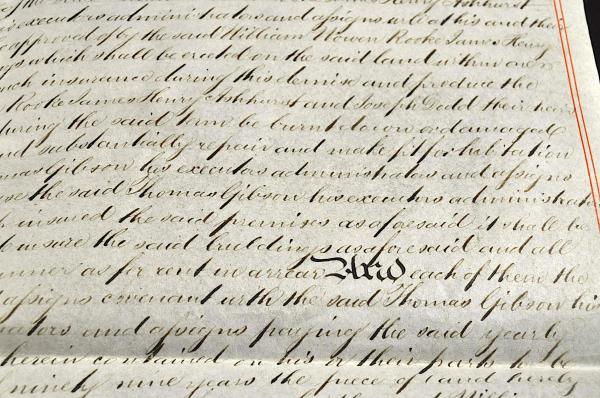 James Henry Ashhurst
executors administrators and assigns will at his and their
approved of by the said William Rooke James Henry
which shall be erected on the said land within one
such insurance during this demise and produce the
Rooke James Henry Ashhurst and Joseph Dodd their heirs
during the said term be burnt down or damaged
and substantially repair and make fit for habitation
Thomas Gibson his executors administrators and assigns
the said Thomas Gibson his executors administrators
insured the said premises as aforesaid it shall be
insure the said buildings as aforesaid and all
manner as for rent in arrear And each of them the
assigns covenant with the said Thomas Gibson his
and assigns paying the said yearly
herein contained on his or their parts to be
ninety nine years the piece of land hereby